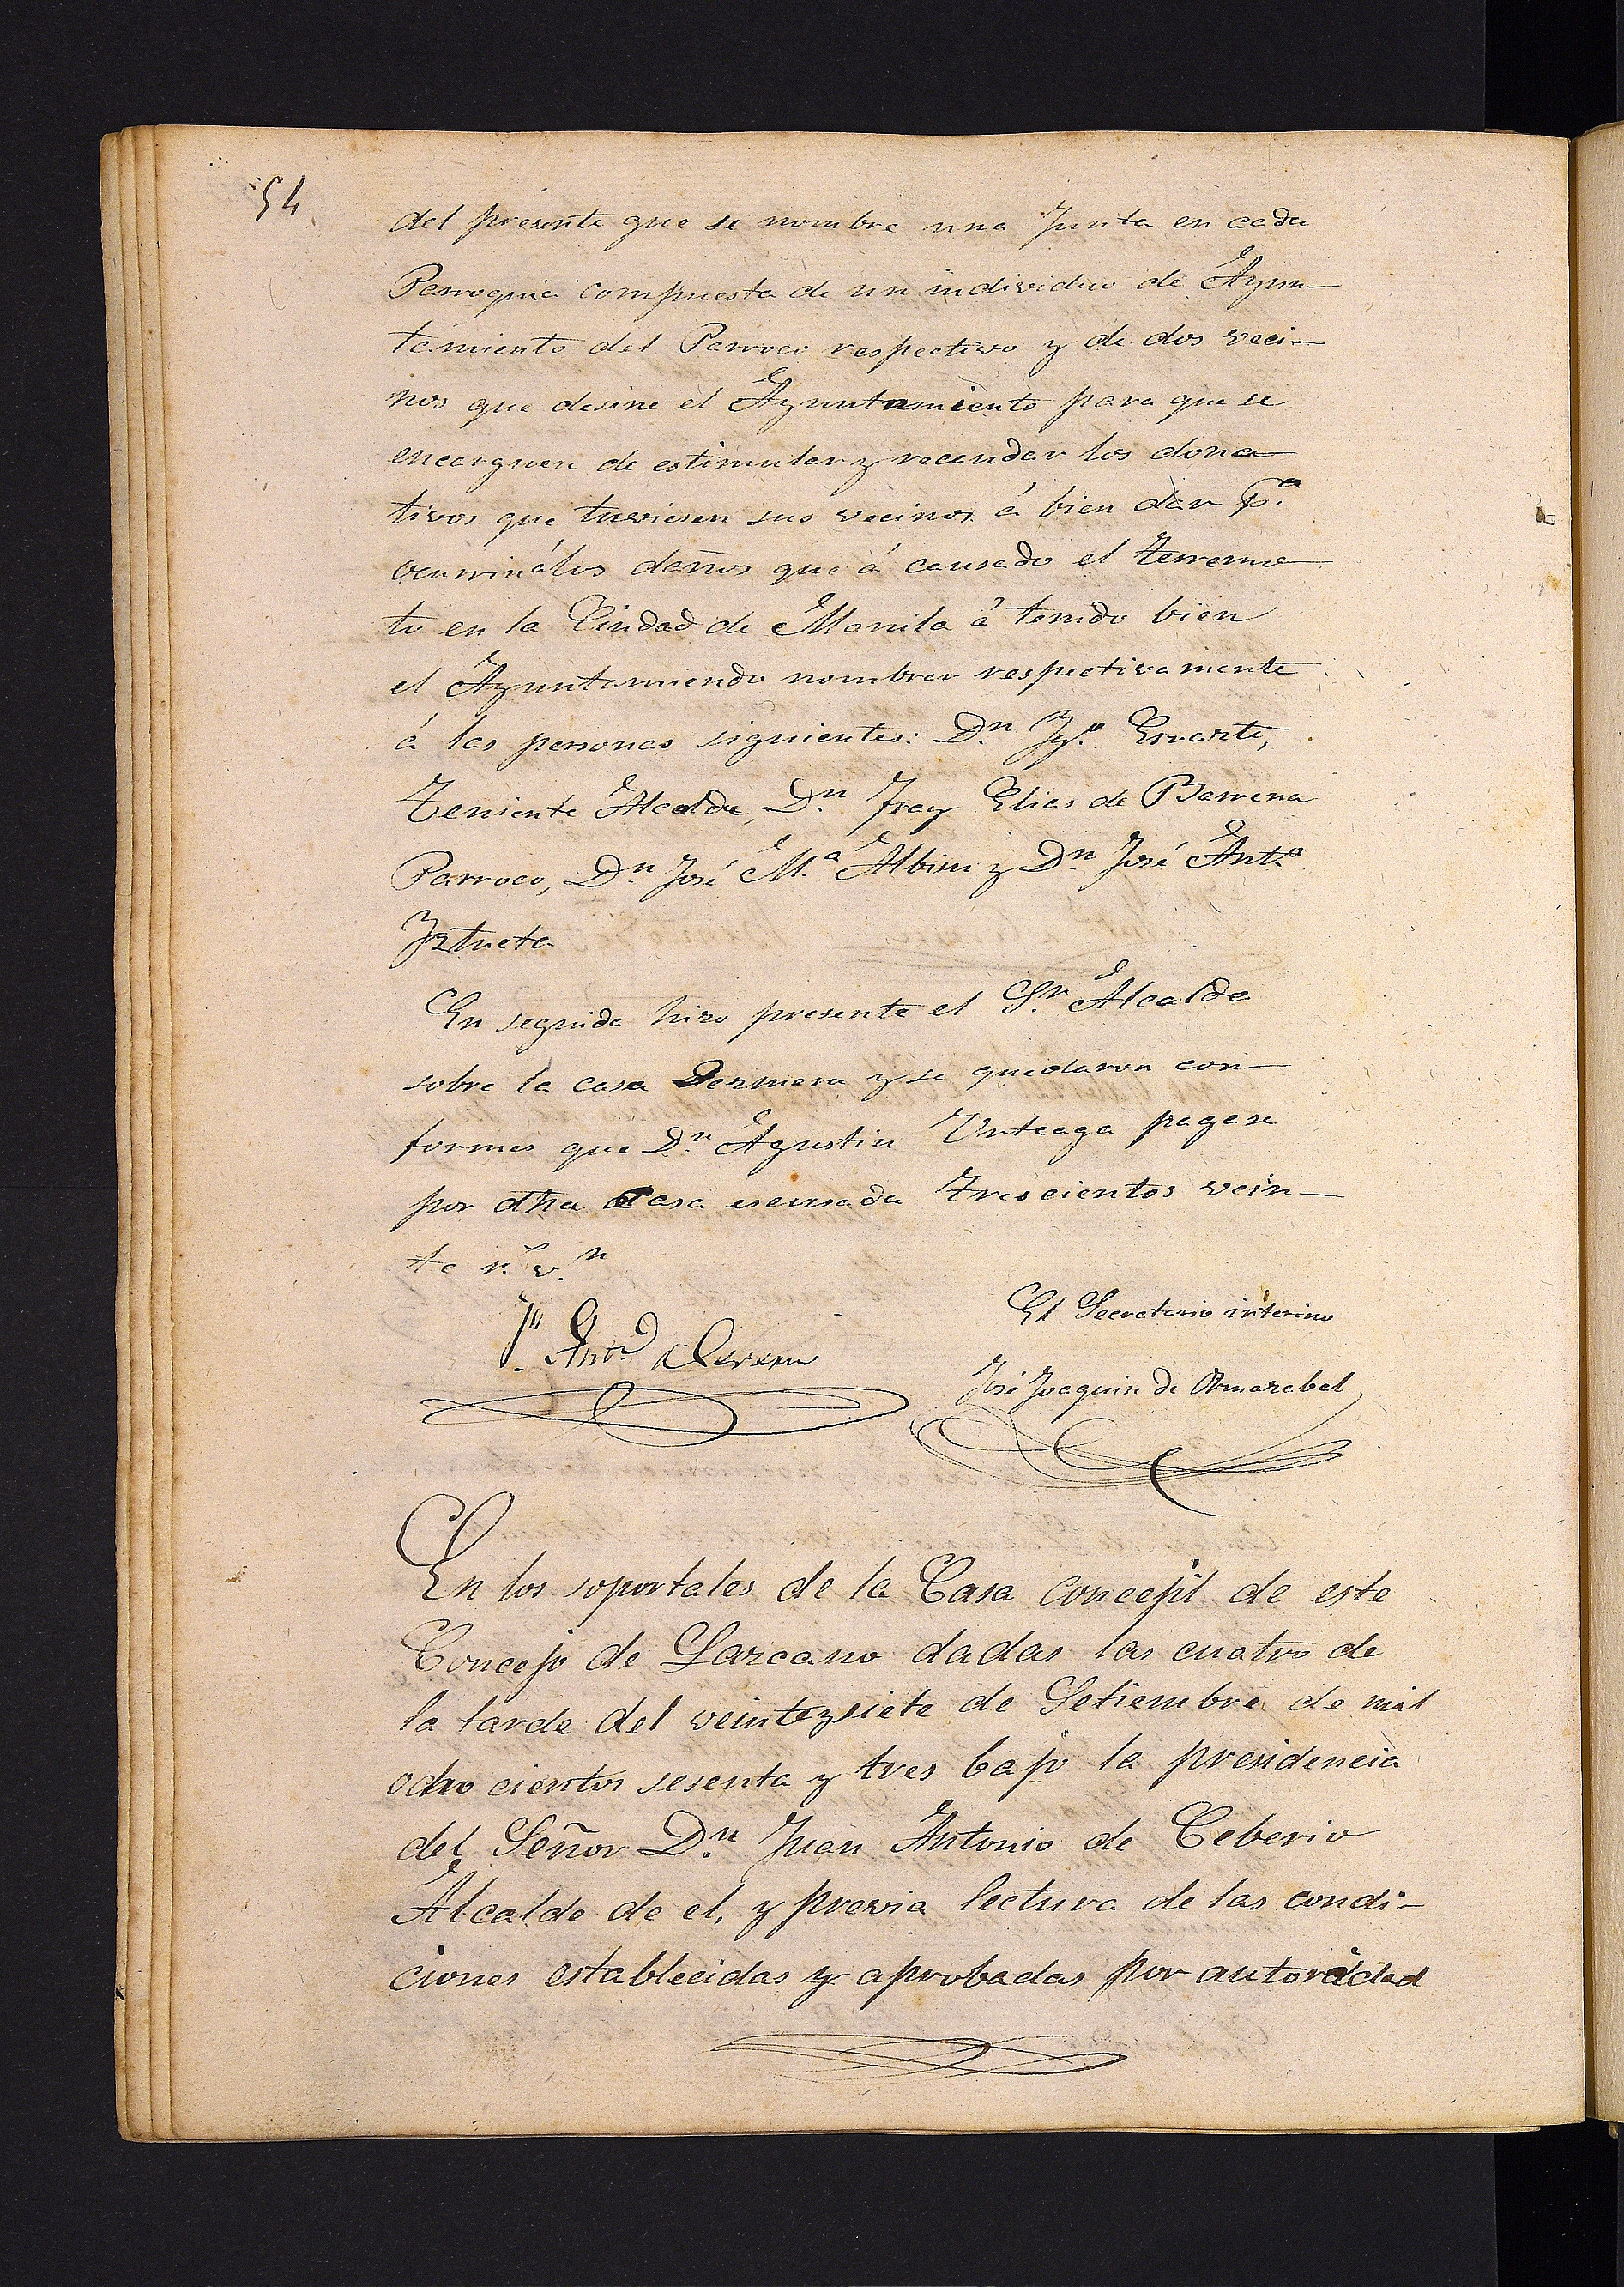 54
del presente que se nombre una Junta en cada
Parroquia compuesta de un individuo de Ayun-
tamiento del Parroco respectivo y de dos veci-
nos que desine el Ayuntamiento para que se
encarguen de estimular y recaudar los dona
tivos que tuviesen sus vecinos á bien dar p.ª
ocurrir á los daños que á causado el terremo
to en la Ciudad de Manila á tenido bien
el Ayuntamiendo nombrar respectivamente
á las personas siguientes: D.n Ig.º
Teniente Alcalde, D.n Fray Elias de Barrena
Parroco, D.n José M.ª Albisu y D.n José Ant.º
Iztueta
En seguida hizo presente el S.r Alcalde
sobre la casa y se quedaron con-
formes que D.n Agustin Urteaga pagase
por dha casa escusada trescientos vein-
te r.s v.n
J.n Ant.º
El Secretario interino
José Joaquin de Ormazabal
En los soportales de la Casa concejil de este
Concejo de Lazcano dadas las cuatro de
la tarde del veinteysiete de Setiembre de mil
ocho cientos sesenta y tres bajo la presidencia
del Señor D.n Juan Antonio de Ceberio
Alcalde de el, y previa lectura de las condi-
ciones establecidas y aprobadas por autoridad